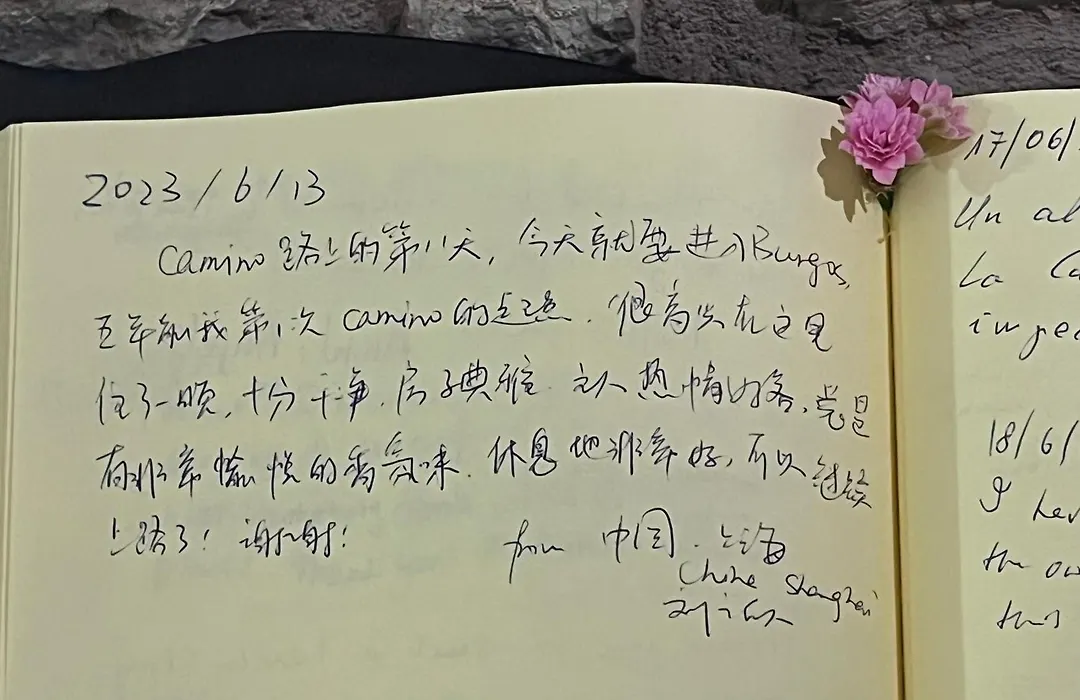 2023/6/13
Camino 路上的第11天，今天就要进入Burgos,
五年前我第1次 camino 的起点．很高兴在这里
住了一晚，十分干净．房子典雅．主人热情好客，总是
有非常愉悦的香氛味．休息地非常好，可以继续
上路了！谢谢！
from 中国．上海
China Shanghai
17/06/
Un al
La Ca
in pe
18/6/
I hav
the ow
this